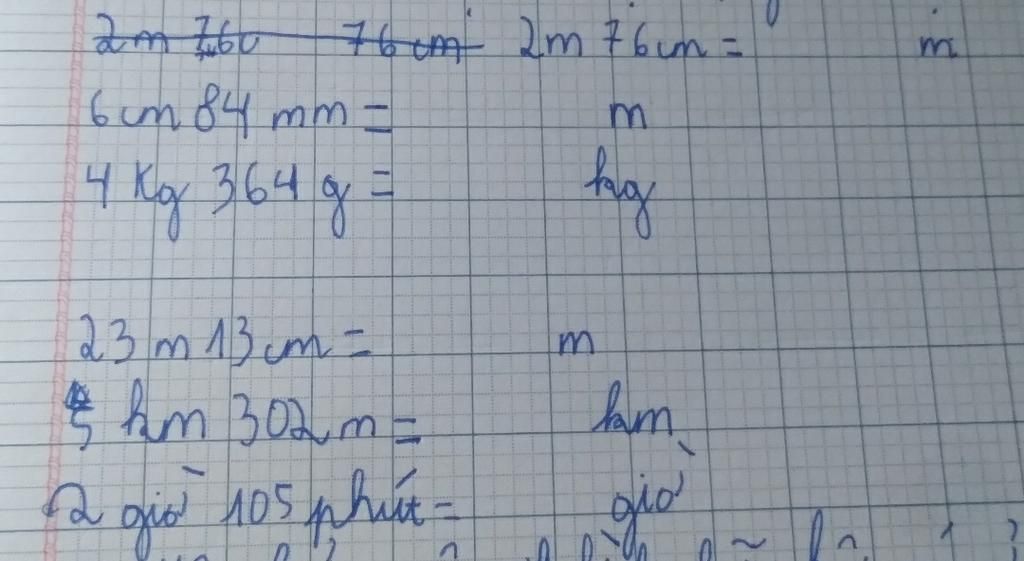 2m 76cm = m
6cm 84 mm = m
4 Kg 364 g = kg
23 m 13 cm = m
5 km 302 m = km
2 giờ 105 phút = giờ